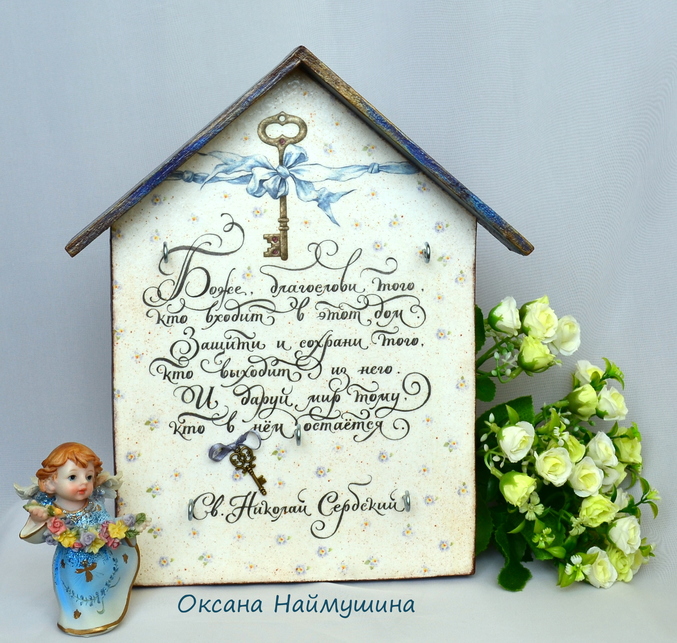 Боже, благослови того,
кто входит в этот дом
Защити и сохрани того,
кто выходит из него.
И даруй мир тому,
кто в нём остаётся
Св. Николай Сербский
Оксана Наймушина